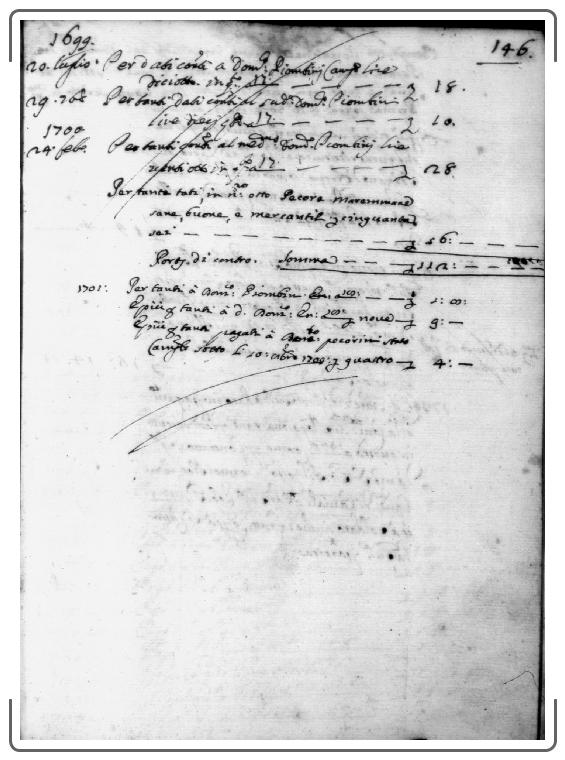 1699. 146.
20. luglio Per dati cōti a Domo: Piombinj Camplo lire
diciotto in fo. a 17. — — — — 18.
29. 7bre Per tanti dati cōti al sudo: Domo: Piombinj
lire dieci a 17 — — — — 10.
1700
24. febb. Per tanti cōti al medmo Domo: Piombinj lire
ventiotto in a 17. — — — 28
Per tante tali, in no: otto Pecore maremmane
sane, buone, e mercantil cinquanta
sei — — — — 56: — — —
Portj. di contro. somma — — — 112: — — —
1701: Per tanti à Domco: Piombin
E più tanti à d. Domco: nove 9: —
E più tanti pagati à pecorini stato
Camplo sotto li 10: 8bre quattro — 4: —